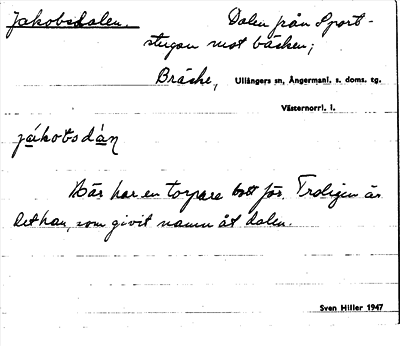 Jakobsdalen. Dalen från Sport-
stugan mot bäcken;
Bräcke, Ullångers sn, Ångermanl. s. doms. tg.
Västernorrl. l.
jákobsdàn
Här har en torpare bott förr. Troligen är
det han, som givit namn åt dalen.
Sven Hiller 1947